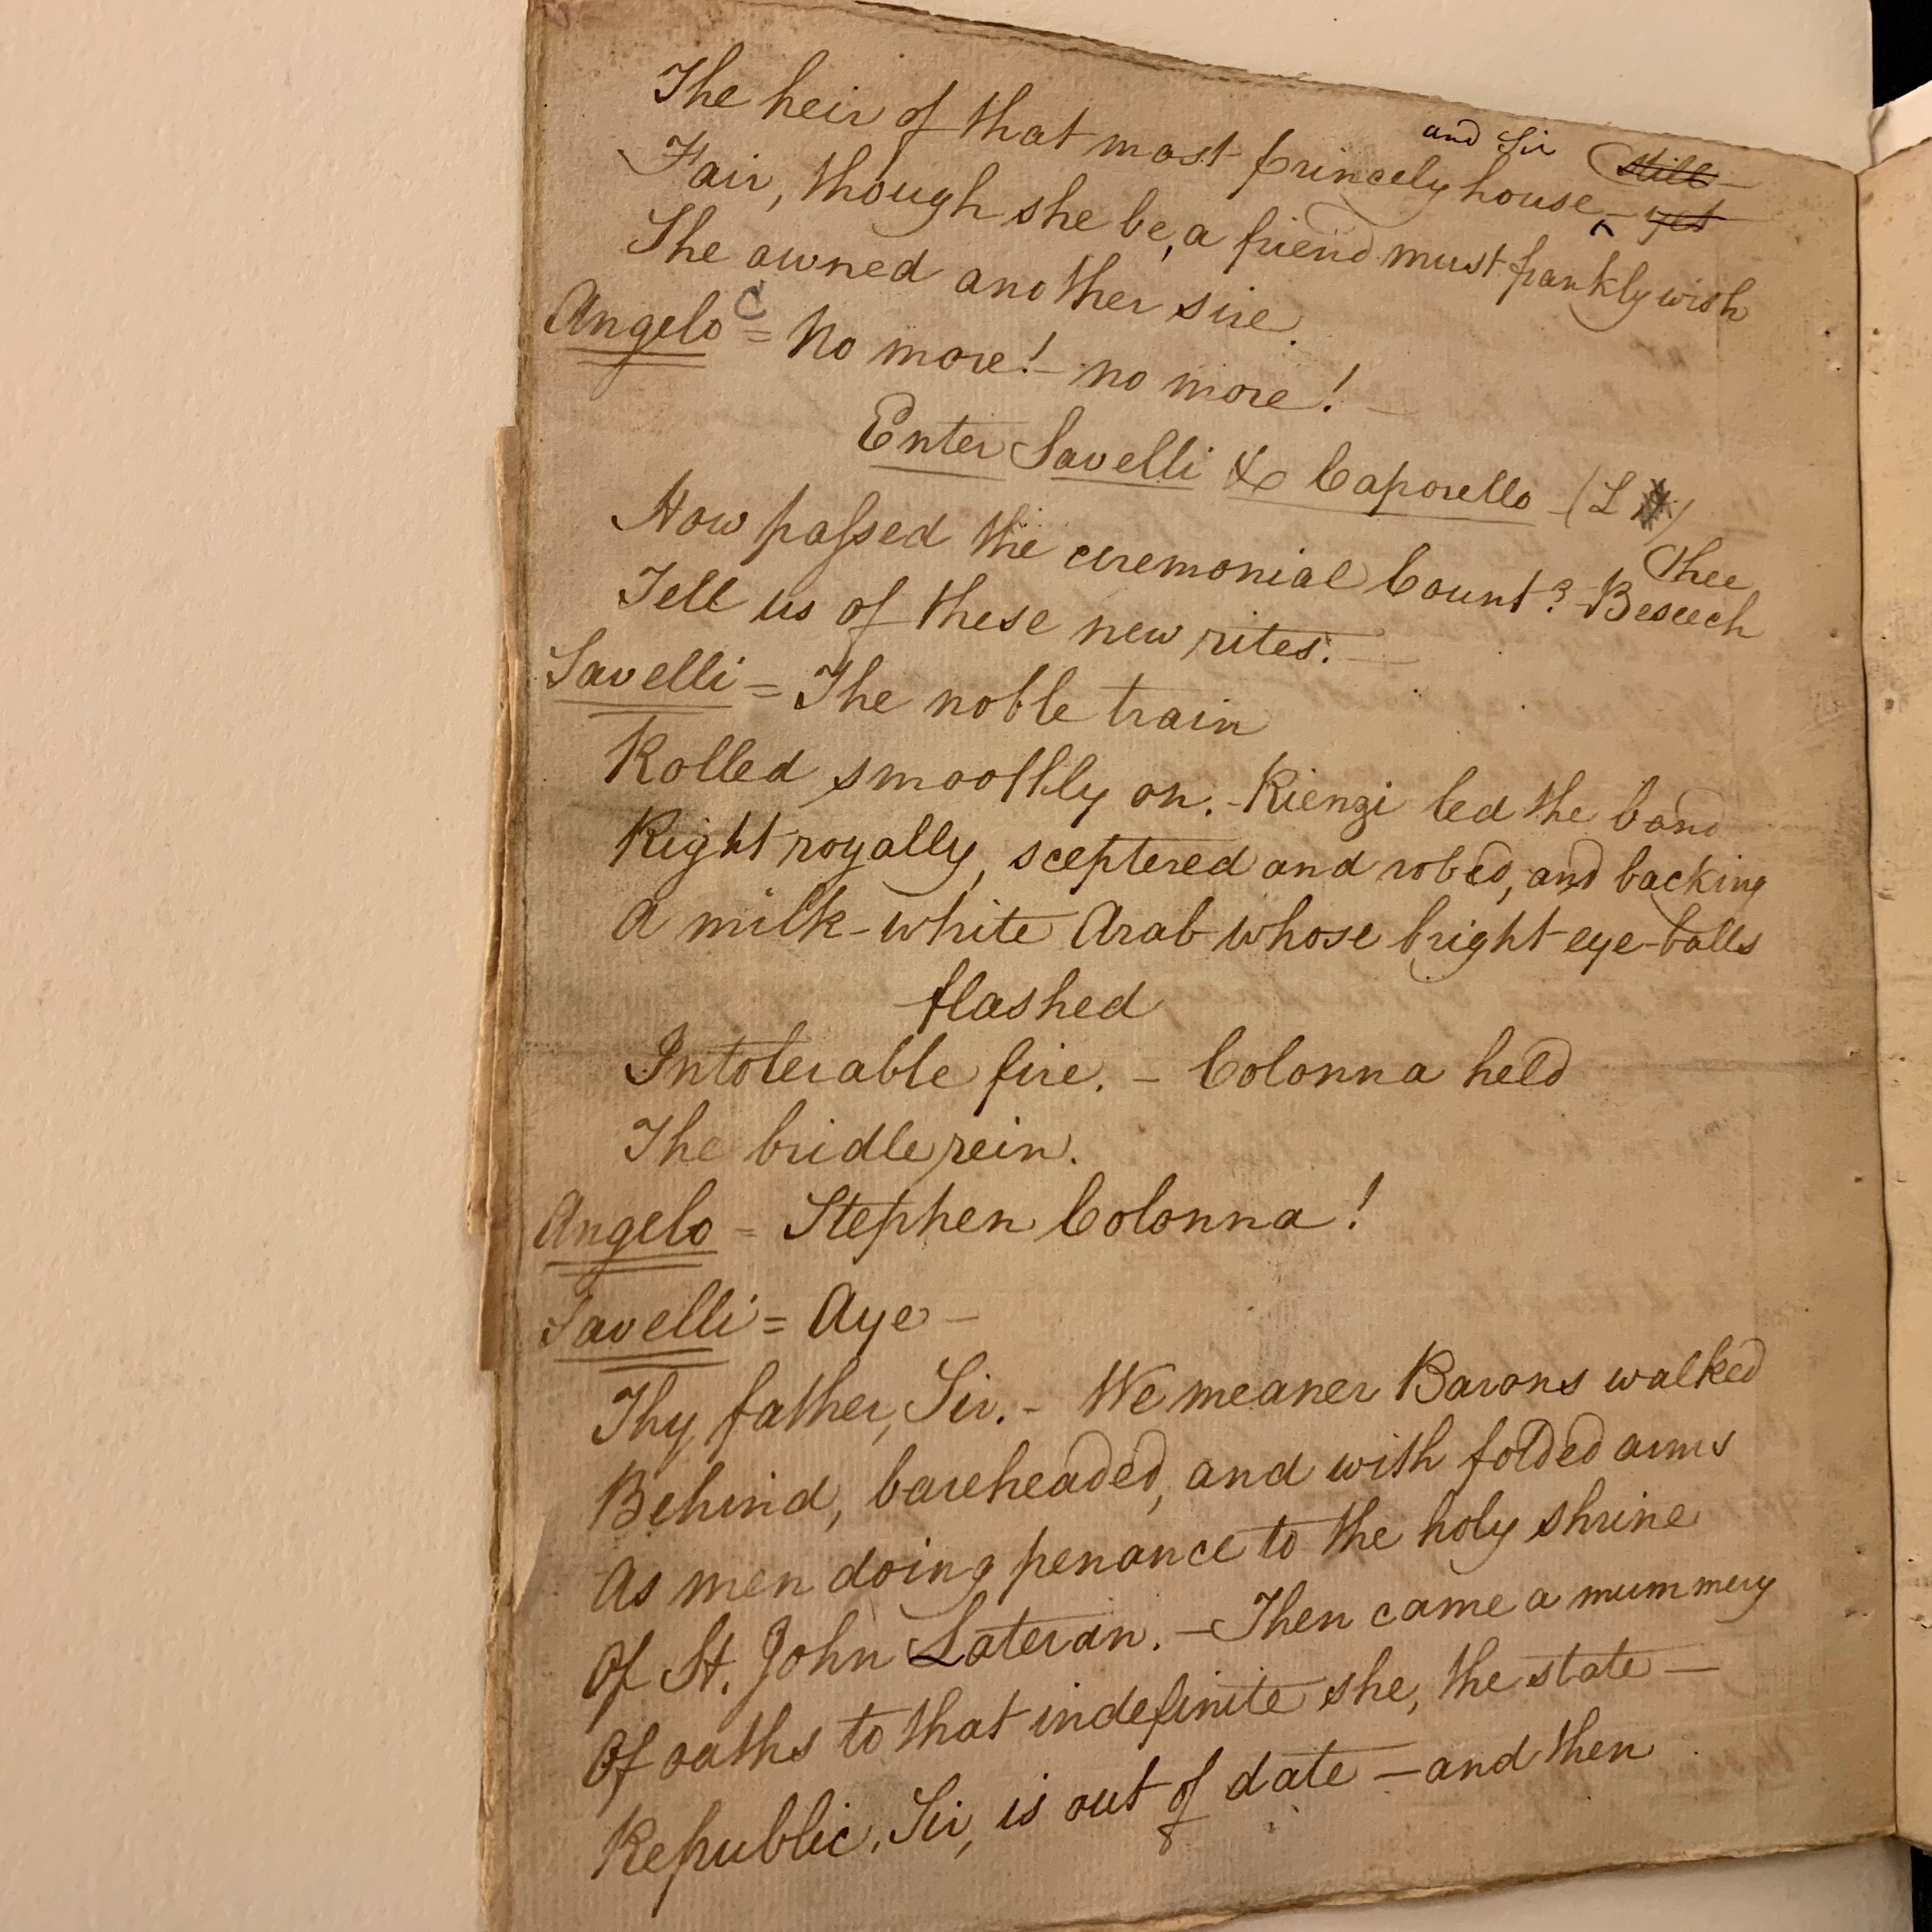 and Sir (still
The heir of that most princely house, - yet
Fair, though she be, a friend must frankly wish
She owned another sire.
Angelo C = No more! - no more! -
Enter Savelli & Caporello - (L )
(thee
How passed the ceremonial Count? - Beseech
Tell us of these new rites. -
Savelli = The noble train
Rolled smoothly on. - Rienzi led the band
Right royally, sceptered and robed, and backing
A milk-white Arab whose bright eye-balls
flashed
Intolerable fire. - Colonna held
The bridle rein.
Angelo = Stephen Colonna!
Savelli = Aye -
Thy father, Sir. - We meaner Barons walked
Behind, bareheaded, and with folded arms
As men doing penance to the holy shrine
Of St. John Lateran. - Then came a mummery
Of oaths to that indefinite she, the state -
Republic, Sir, is out of date - and then